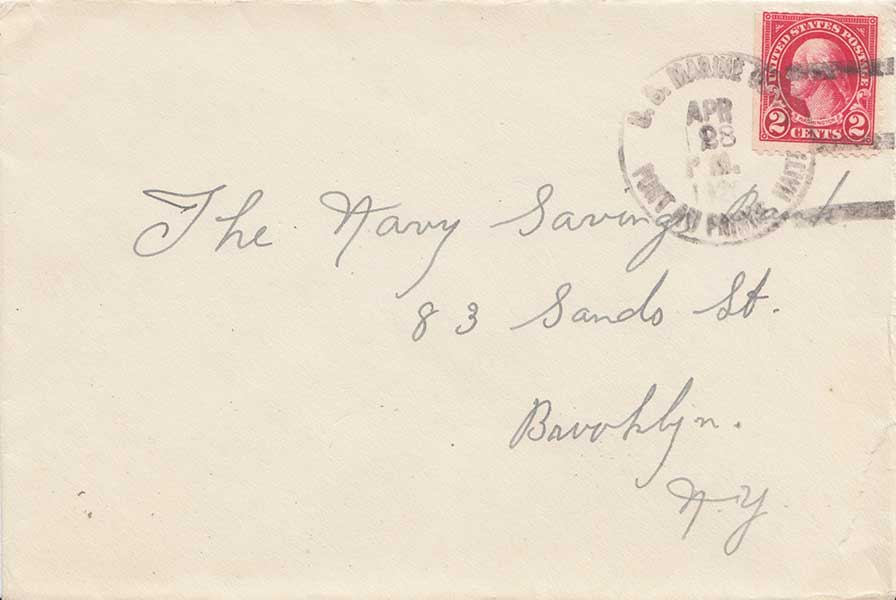 UNITED STATES POSTAGE
WASHINGTON
2 CENTS 2
U.S. MARINE
APR
28
P M.
PORT AU PRINCE HAITI
The Navy Savings Bank
83 Sands St.
Brooklyn.
N.Y.